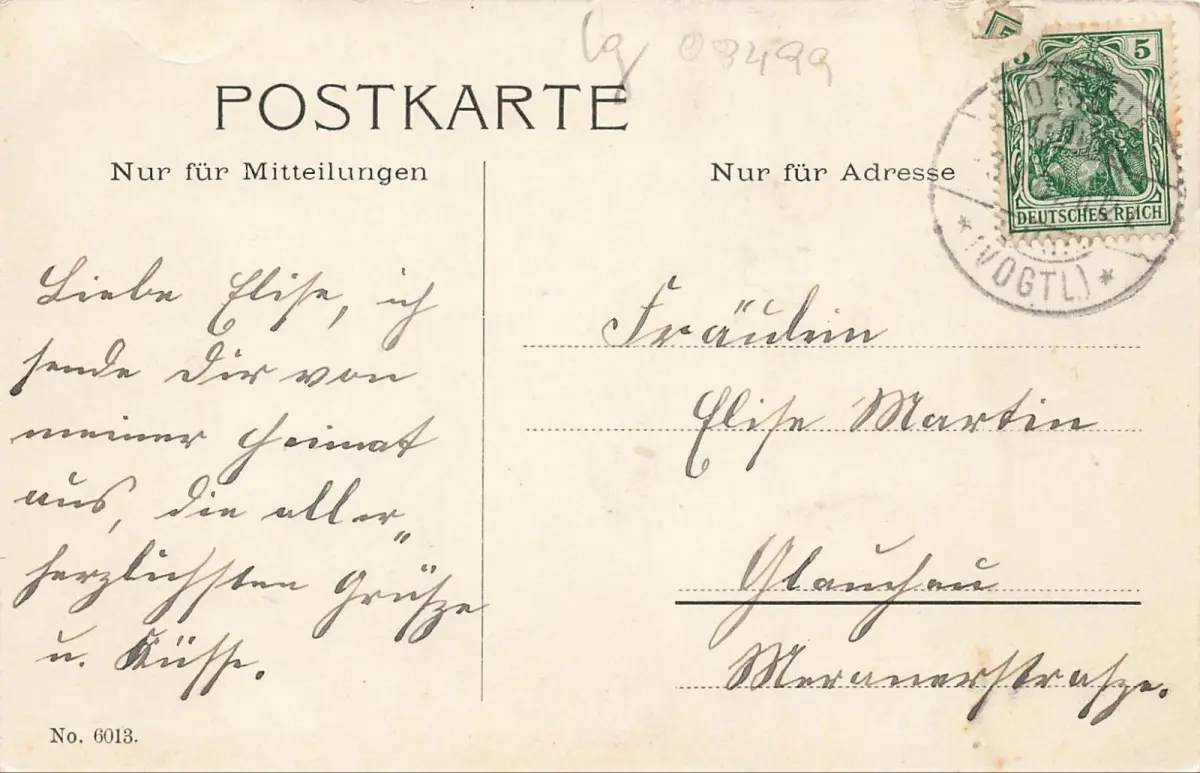 lg 08499
POSTKARTE
5 5
Nur für Mitteilungen
Nur für Adresse
DEUTSCHES REICH
* (VOGTL.) *
Liebe Elise, ich
sende Dir von
meiner Heimat
aus, die aller„
herzlichsten Grüsze
u. Küsse.
Fräulein
Elise Martin
Glauchau
Meranerstrasze.
No. 6013.